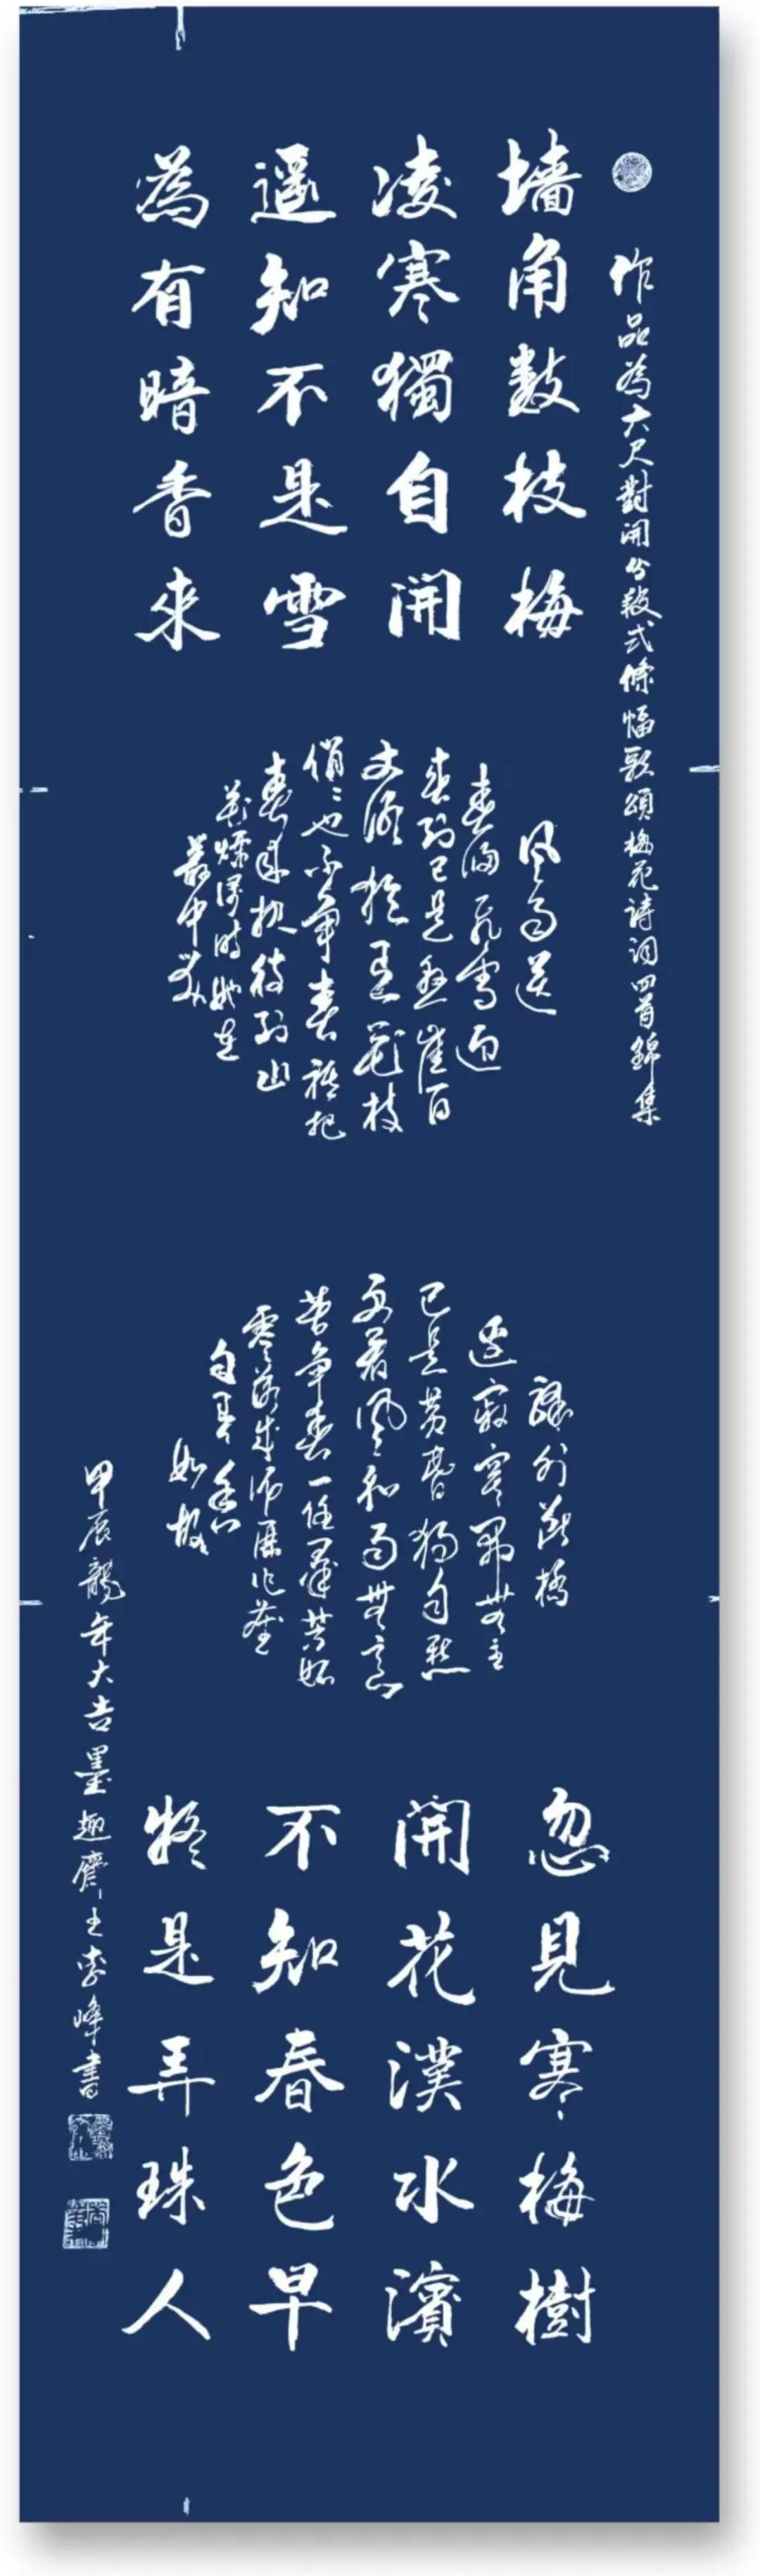 作品為六尺對開分段式條幅歌頌梅花詩詞四首錦集
墙角數枝梅
凌寒獨自開
遥知不是雪
為有暗香來
風雨送
春歸飛雪迎
春到已是懸崖百
丈冰猶有花枝
俏俏也不爭春祗把
春來報待到山
花爛漫時她在
叢中笑
驛外斷橋
邊寂寞開無主
已是黄昏獨自愁
更著風和雨無意
苦爭春一任群芳妒
零落成泥碾作塵
自有香
如故
忽見寒梅樹
開花漢水濱
不知春色早
疑是弄珠人
甲辰龍年大吉墨趣齋主李峰書